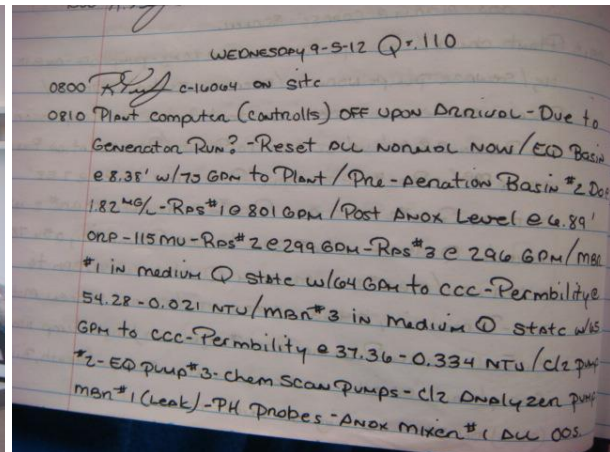 WEDNESDAY 9-5-12 Q=.110
0800 C-16064 ON Site
0810 Plant computer (controlls) OFF UPON ARRIVAL - Due to
Generator Run? - Reset ALL NORMAL NOW / EQ Basin
@ 8.38' w/75 GPM to Plant / Pre-Aeration Basin #2 DO@
1.82 MG/L - RAS #1 @ 801 GPM / Post ANOX Level @ 6.89'
ORP -115 MU - RAS #2 @ 299 GPM - RAS #3 @ 296 GPM / MBR
#1 in medium Q State w/64 GPM to CCC - Permbility @
54.28 - 0.021 NTU / MBR #3 in Medium Q State w/65
GPM to CCC - Permbility @ 37.36 - 0.334 NTU / Cl2 pump
#2 - EQ Pump #3 - Chem Scan Pumps - Cl2 Analyzer pump
MBR #1 (Leak) - PH Probes - Anox Mixer #1 ALL OOS.